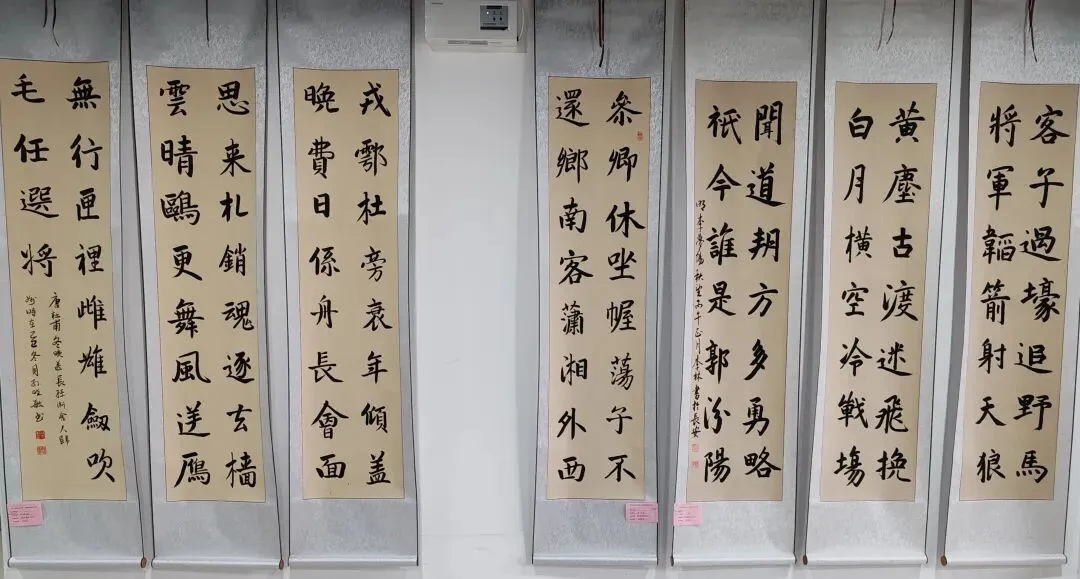 客子過壕追野馬
將軍韜箭射天狼
黃塵古渡迷飛挽
白月橫空冷戰場
聞道朔方多勇略
祇今誰是郭汾陽
明李夢陽秋望丙午正月李林書於長安
參卿休坐幄蕩子不
還鄉南客瀟湘外西
戎鄠杜旁衰年傾盖
晚費日係舟長會面
思来札銷魂逐去檣
雲晴鷗更舞風送鴈
無行匣裡雌雄劔吹
毛任選將
唐杜甫冬晚送長孫漸舍人歸
州時在乙巳冬月